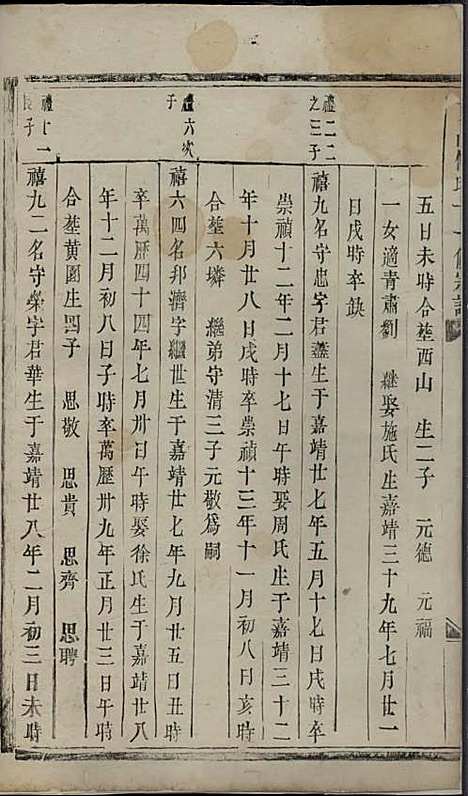 五日未時合塟西山　生二子　元德　元福
一女適青肅劉　繼娶施氏生嘉靖三十九年七月廿一
日戌時卒缺
禮二二之三子
禧九名守忠字君藎生于嘉靖廿七年五月十七日戌時卒
崇禎十二年二月十七日午時娶周氏生于嘉靖三十二
年十月廿八日戌時卒崇禎十三年十一月初八日亥時
合塟六墶　繼弟守清三子元敬爲嗣
禮六次子
禧六四名邦濟字繼世生于嘉靖廿七年九月廿五日丑時
卒萬曆四十四年七月卅日午時娶徐氏生于嘉靖廿八
年十二月初八日子時卒萬曆卅九年正月廿三日午時
合塟黄園生四子　思敬　思貴　思齊　思聘
禮十一長子
禧九二名守榮字君華生于嘉靖廿八年二月初三日未時